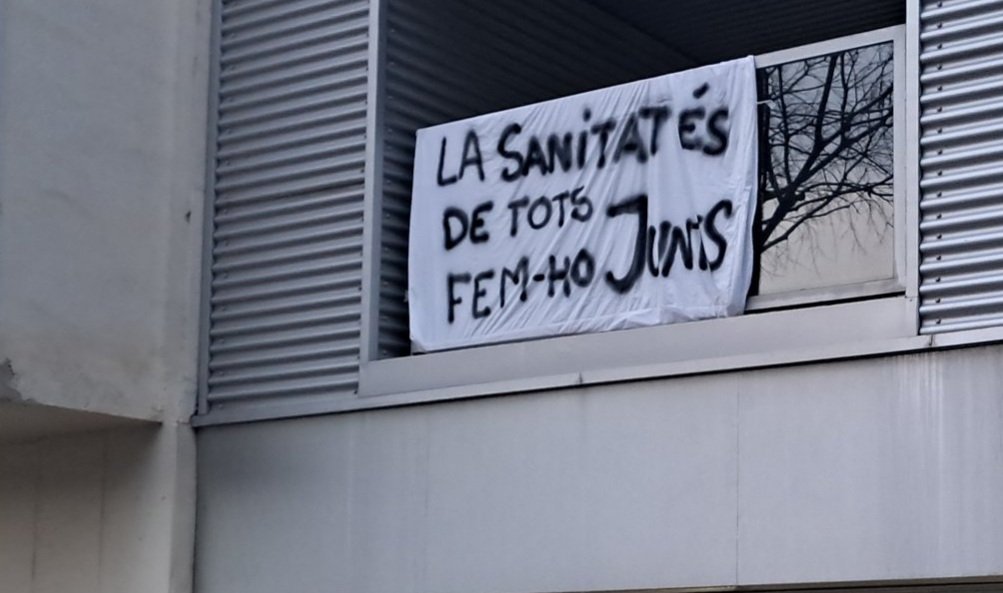 LA SANITAT ÉS
DE TOTS
FEM-HO JUNTS